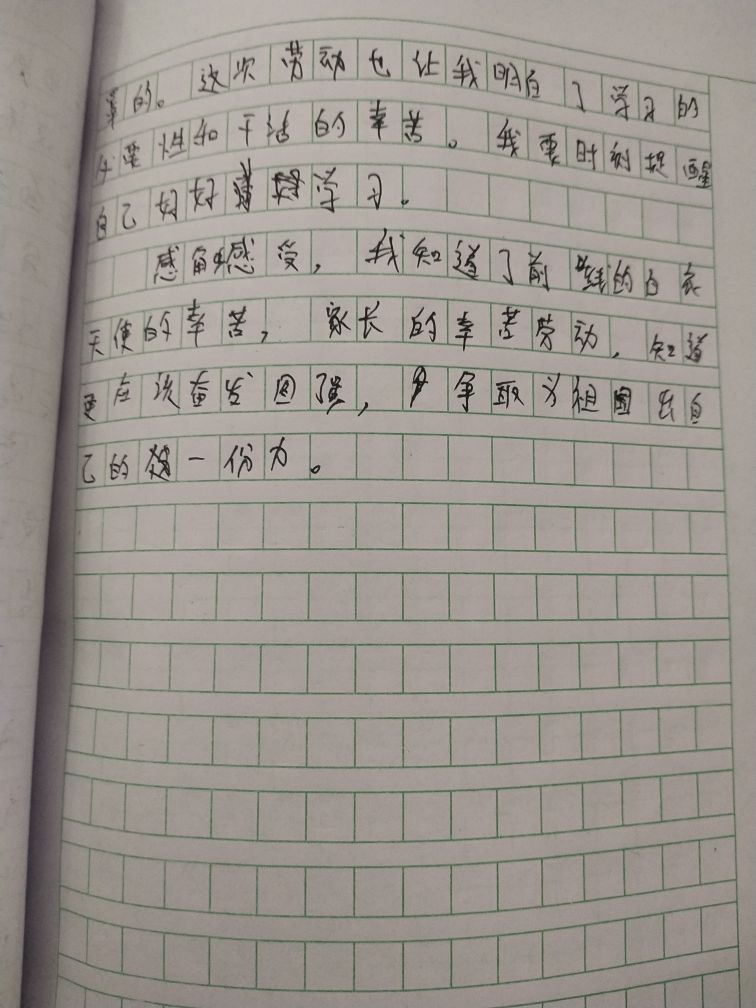 幸的。这次劳动也让我明白了学习的
重要性和干活的幸苦。我要时刻提醒
自己好好学习。
感感受，我知道了前线的白衣
天使的幸苦，家长的幸苦劳动，知道
更应该奋发图强，争取为祖国出自
己的一份力。